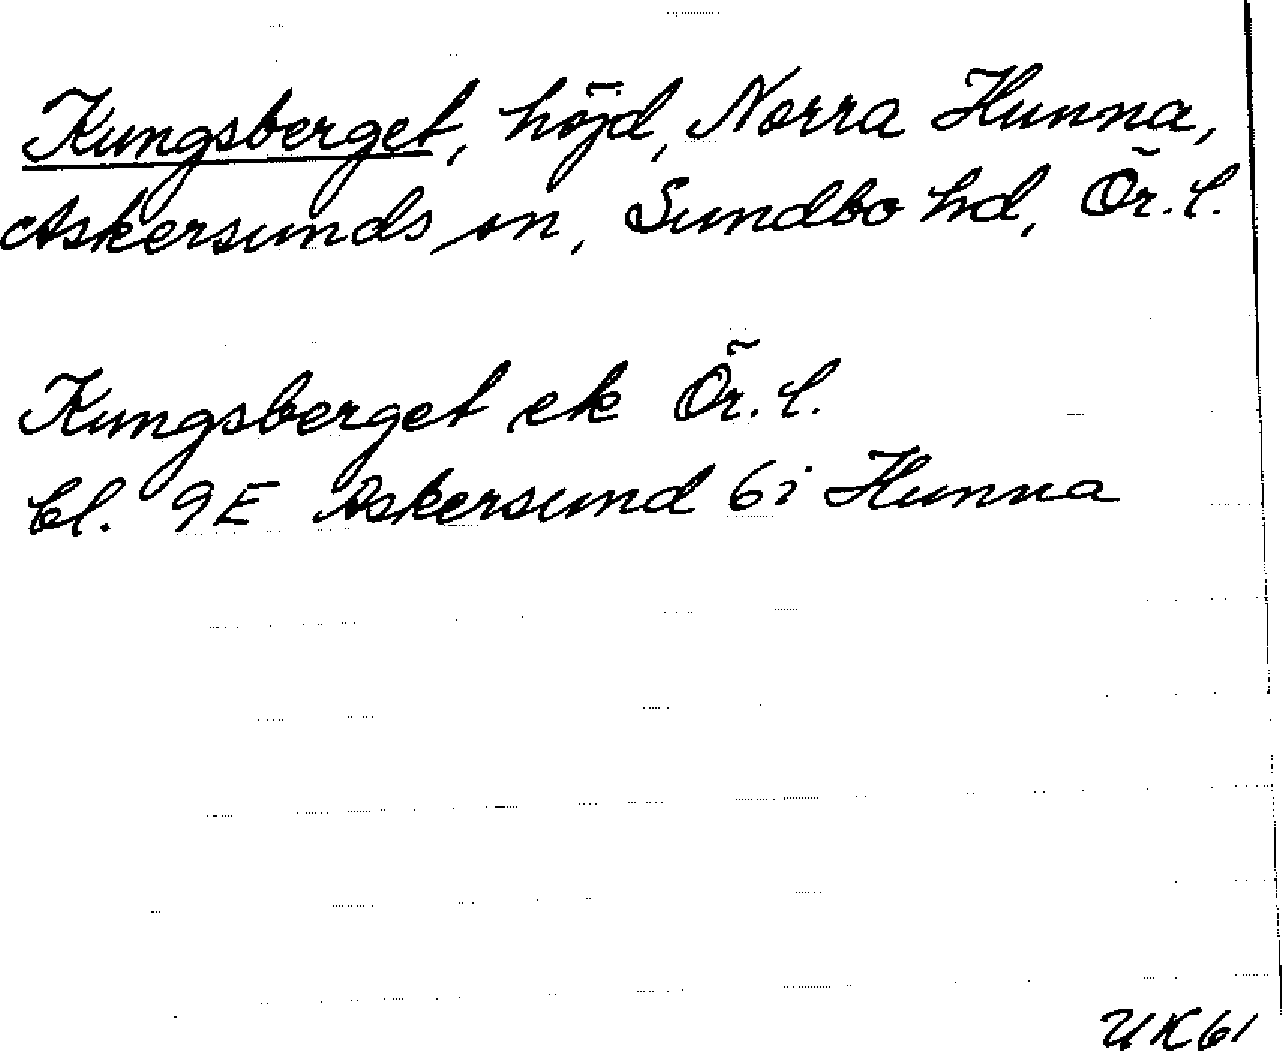 Kungsberget, höjd, Norra Hunna,
Askersunds sn, Sundbo hd, Ör. l.
Kungsberget ek Ör. l.
bl. 9E Askersund 6i Hunna
UK61